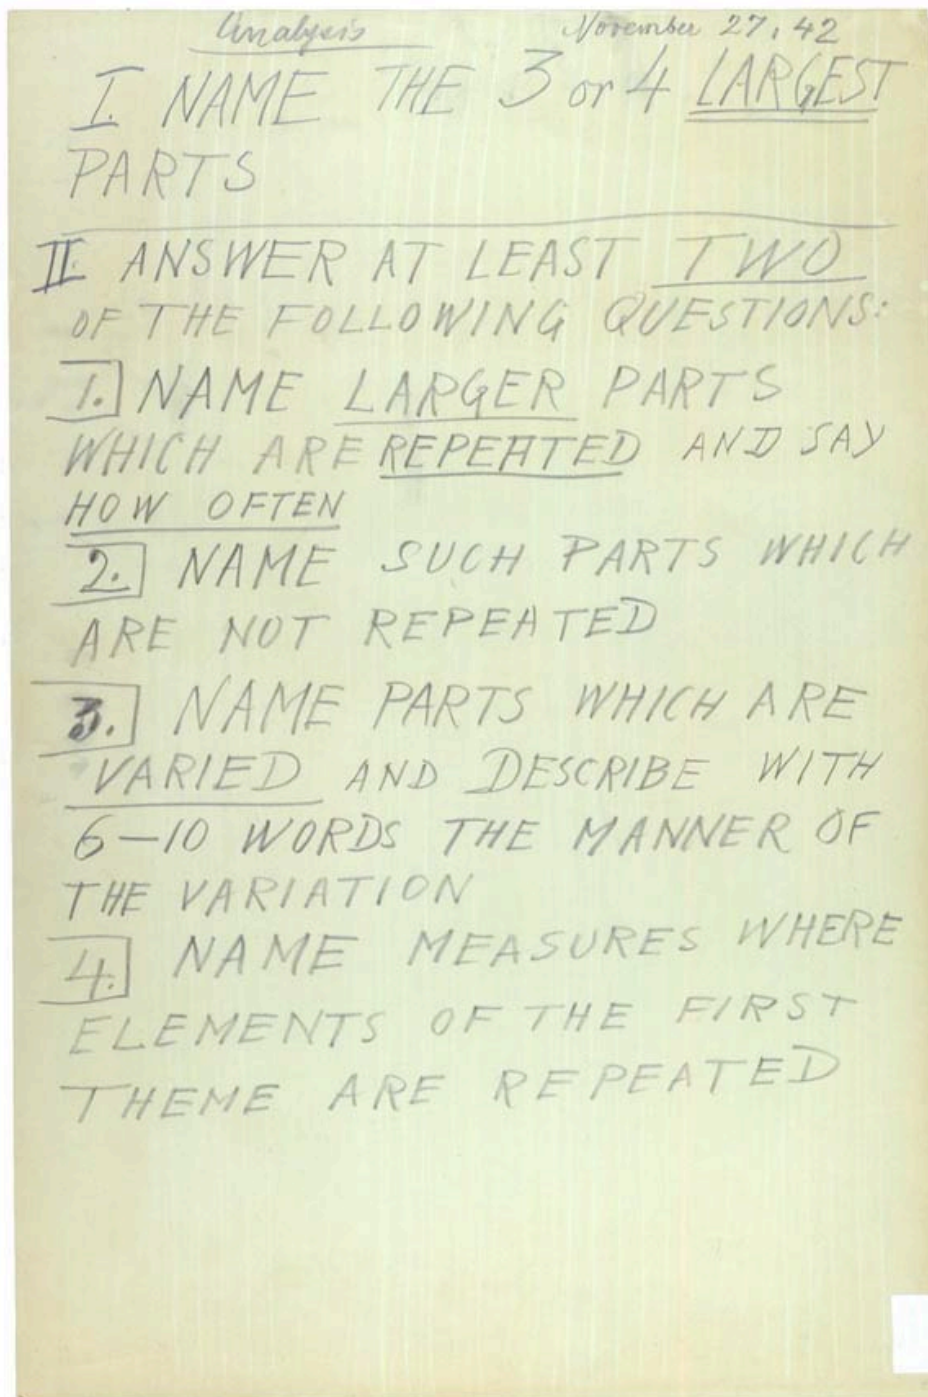 Analysis November 27, 42
I. NAME THE 3 or 4 LARGEST
PARTS
II. ANSWER AT LEAST TWO
OF THE FOLLOWING QUESTIONS:
1. NAME LARGER PARTS
WHICH ARE REPEATED AND SAY
HOW OFTEN
2. NAME SUCH PARTS WHICH
ARE NOT REPEATED
3. NAME PARTS WHICH ARE
VARIED AND DESCRIBE WITH
6–10 WORDS THE MANNER OF
THE VARIATION
4. NAME MEASURES WHERE
ELEMENTS OF THE FIRST
THEME ARE REPEATED